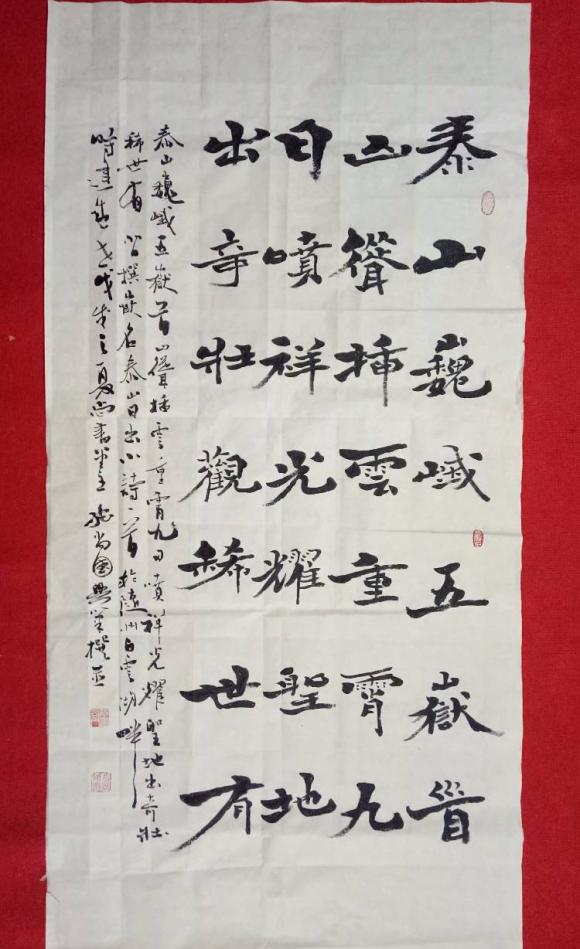 泰山巍峨五嶽首
山聳插雲重霄九
日噴祥光耀聖地
出奇壯觀稀世有
泰山巍峨五嶽首山聳插雲重霄九日噴祥光耀聖地出奇壯
稀世有 撰嵌名泰山日出小詩一首於隨州白雲湖畔
時 戊戌 之夏尚書堂主 尚國 撰